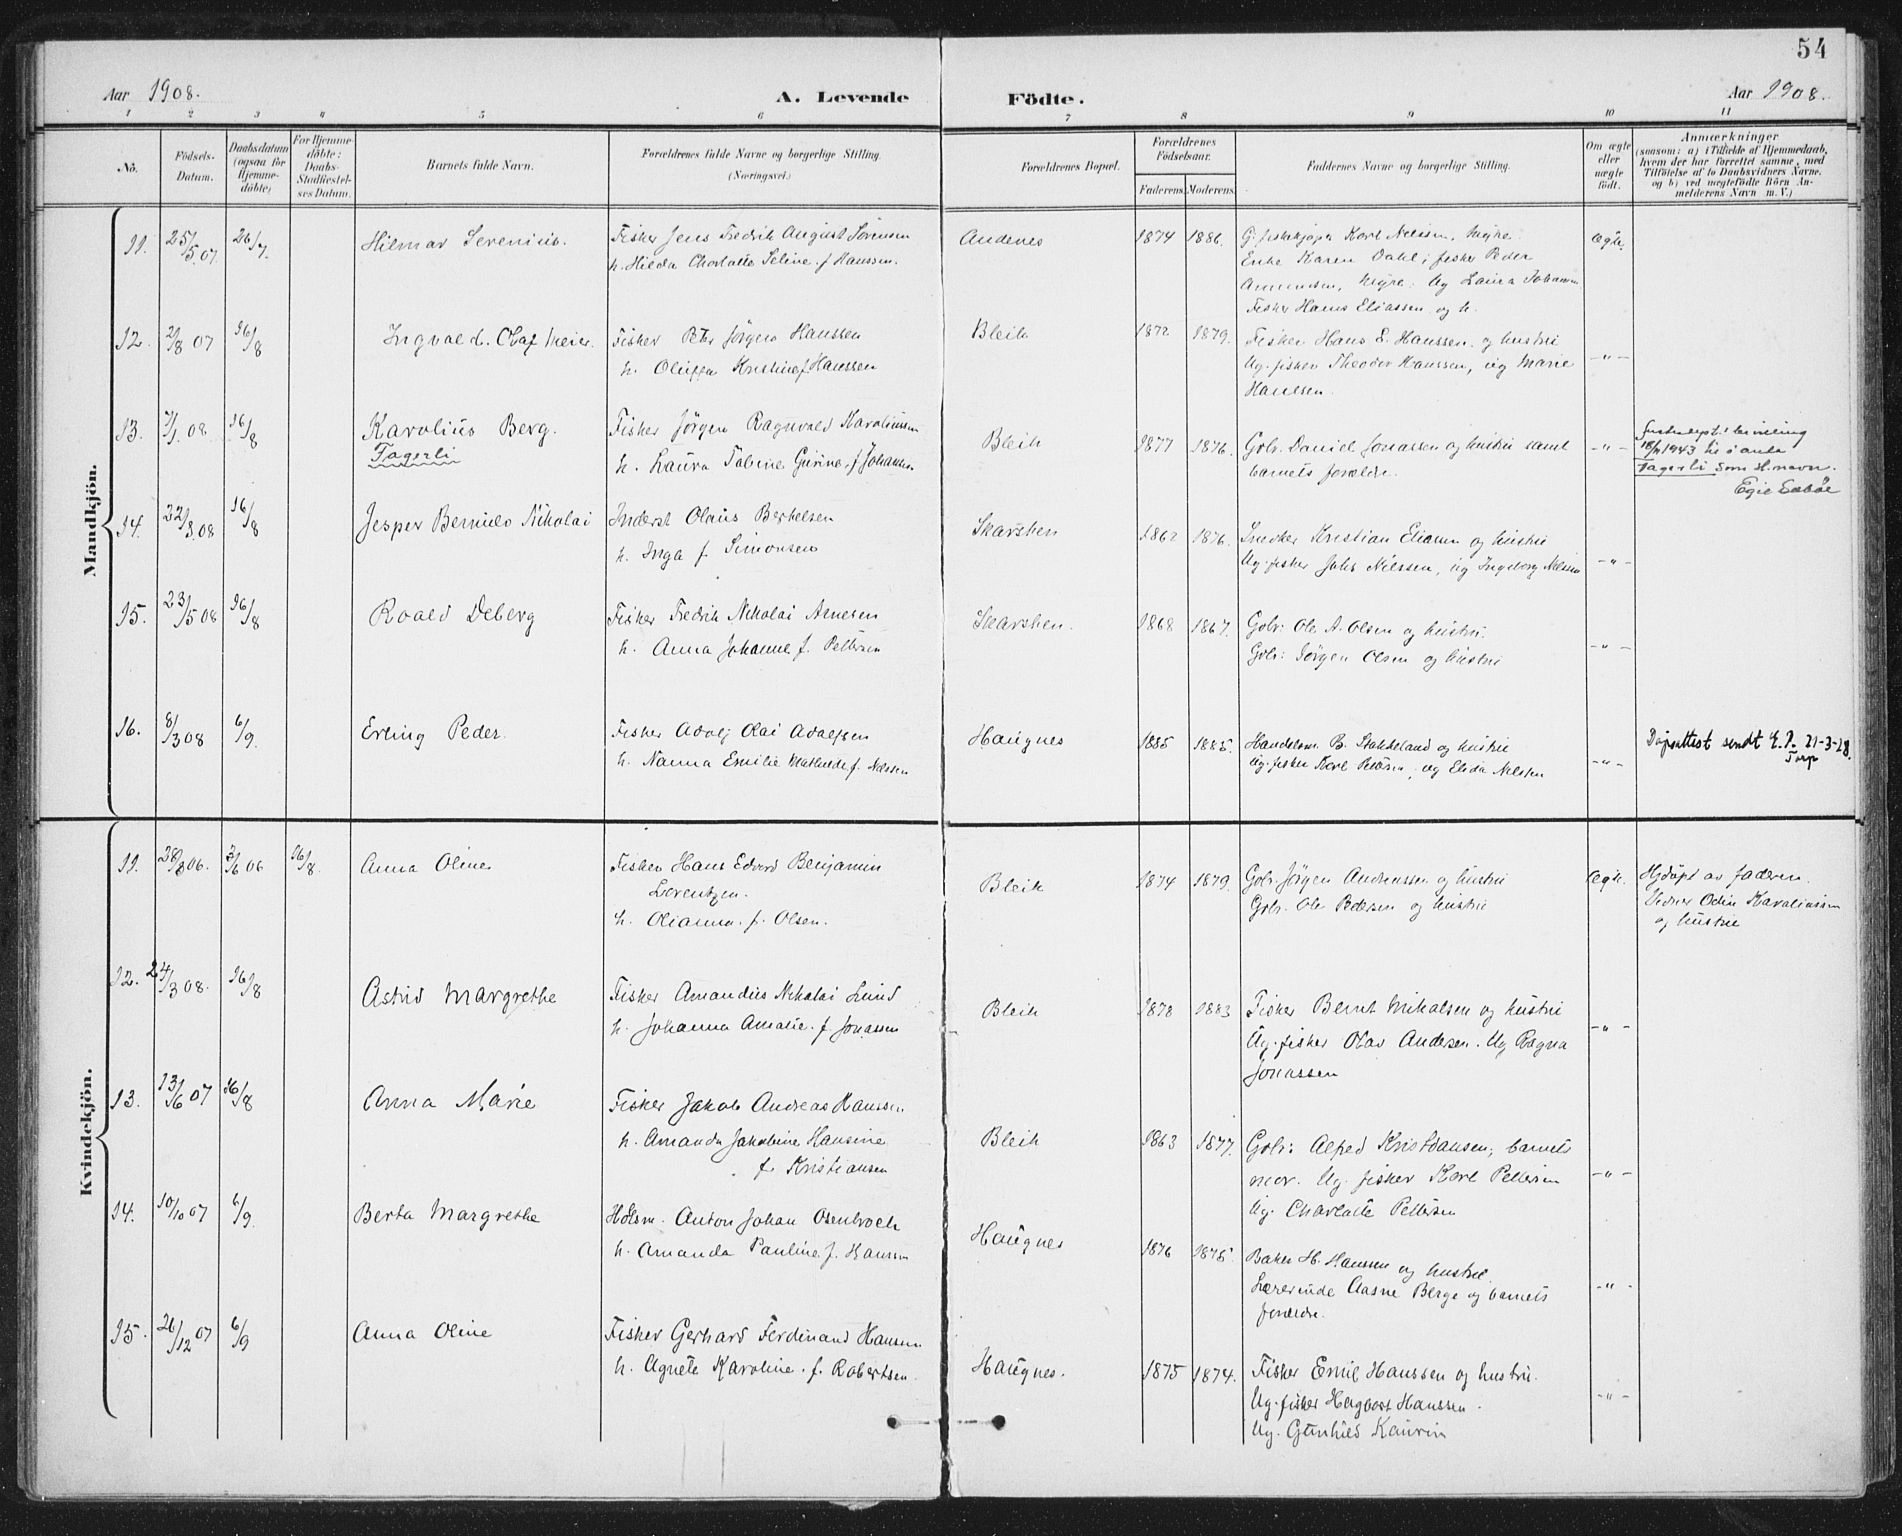 54
Aar 1908.
A. Levende Födte.
Aar 1908.
1 2 3 4 5 6 7 8 9 10 11
No.
Födsels-Datum.
Daabsdatum (ogsaa for Hjemme-döbte)
For Hjemme-döbte: Daabs-Stadfæstel-ses Datum.
Barnets fulde Navn.
Forældrenes fulde Navne og borgerlige Stilling. (Næringsvei.)
Forældrenes Bopæl.
Forældrenes Födselsaar.
Faderens. Moderens.
Faddernes Navne og borgerlige Stilling.
Om ægte eller uægte födt.
Anmærkninger
(saasom: a) i Tilfælde af Hjemmedaab,
hvem der har forrettet samme, med
Tilföielse af to Daabsvidners Navne.
og b) ved uægtefödte Börn An-
melderens Navn m. V.)
Mandkjön.
11. 25/5.07. 26/7. Hilmar Serenius.
Fisker Jens Fredrik August Sörensen
h. Hilda Charlotte Seline f Hanssen.
Andenes 1874 1886.
G. fiskekjöper Karl Nelssen, Myre.
Enke Karen Dahl; fisker Peder
Amundsen, Myre. Ug Laura Johansen
Fisker Hans Eliassen og h.
Ægte.
12. 2/8 07 16/8 Ingvald Olaf Meier.
Fisker Peter Jörgen Hanssen
h. Oluffa Kristine f Hanssen
Bleik 1872 1879.
Fisker Hans E. Hanssen og hustru
Ug. fisker Theodor Hanssen, ug Marie
Hanssen.
-"-
13. 7/1 08 16/8 Karolius Berg.
Fagerli
Fisker Jörgen Ragnvald Karoliussen
h. Laura Tabine Gurine f Johansen
Bleik 1877 1876.
Gbr. Daniel Jonassen og hustru samt
barnets forældre.
-"-
Justisdept.s bevilling
1943 til å anta
Fagerli som H.navn.
14. 22/3.08 16/8 Jesper Bernido Nikolai
Inderst Olaus Bertelsen
h. Inga f. Simonsen
Skarsten 1862 1876.
Snedker Kristian Eliassen og hustru
Ug. fisker Johs Nilssen, ug Ingeborg Nilssen
-"-
15. 23/5 08 16/8 Roald Deberg
Fisker Fredrik Nikolai Arnesen
h. Anna Johanne f. Pettersen
Skarsten. 1868 1867.
Gbr: Ole A. Olsen og hustru.
Gbr: Jörgen Olsen og hustru
-"-
16. 8/3 08 6/9. Erling Peder.
Fisker Adolf Olai Adolfsen
h. Nanna Emilie Mathilde f. Nilssen
Haugnes 1885 1885.
Handelsm. B. Stokkeland og hustru
Ug. fisker Karl Petersen, ug Elida Nilsen
-"-
Dåpsattest sendt E.P. 21-3-28.
Torp
Kvindekjön.
11. 28/3 06. 3/6 06 16/8. Anna Oline
Fisker Hans Edvard Benjamin
Lorentzen.
h. Olianna f. Olsen.
Bleik 1874 1879.
Gbr. Jörgen Andreassen og hustru
Gbr. Ole Pedersen og hustru
Ægte.
Hjdöpt av faderen.
Vidner Odin Karoliussen
og hustru
12. 24/3 08. 16/8 Astrid Margrethe
Fisker Amandus Nikolai Lund
h. Johanna Amalie f. Jonassen
Bleik 1878 1883
Fisker Bernt Mikalsen og hustru
Ug. fisker Olav Andersen. Ug Ragna
Jonassen
-"-
13. 13/6 07 16/8 Anna Marie
Fisker Jakob Andreas Hanssen
h. Amanda Jakobine Hansine
f. Kristiansen
Bleik 1863 1877.
Gbr: Alfred Kristiansen, barnets
mor. Ug. fisker Karl Pettersen
Ug. Charlotte Pettersen
-"-
14. 10/10 07 6/9. Berta Margrethe
Hdlsm. Anton Johan Osenbroch
h. Amanda Pauline f. Hanssen
Haugnes 1876 1875.
Baker H. Hanssen og hustru.
Lærerinde Aasne Berge og barnets
forældre.
-"-
15. 26/12 07 6/9 Anna Oline
Fisker Gerhard Ferdinand Hansen
h. Agnete Karoline f. Robertsen.
Haugnes. 1875 1874.
Fisker Emil Hanssen og hustru.
Ug. fisker Hagbart Hanssen.
Ug. Gunhild Kaurin
-"-